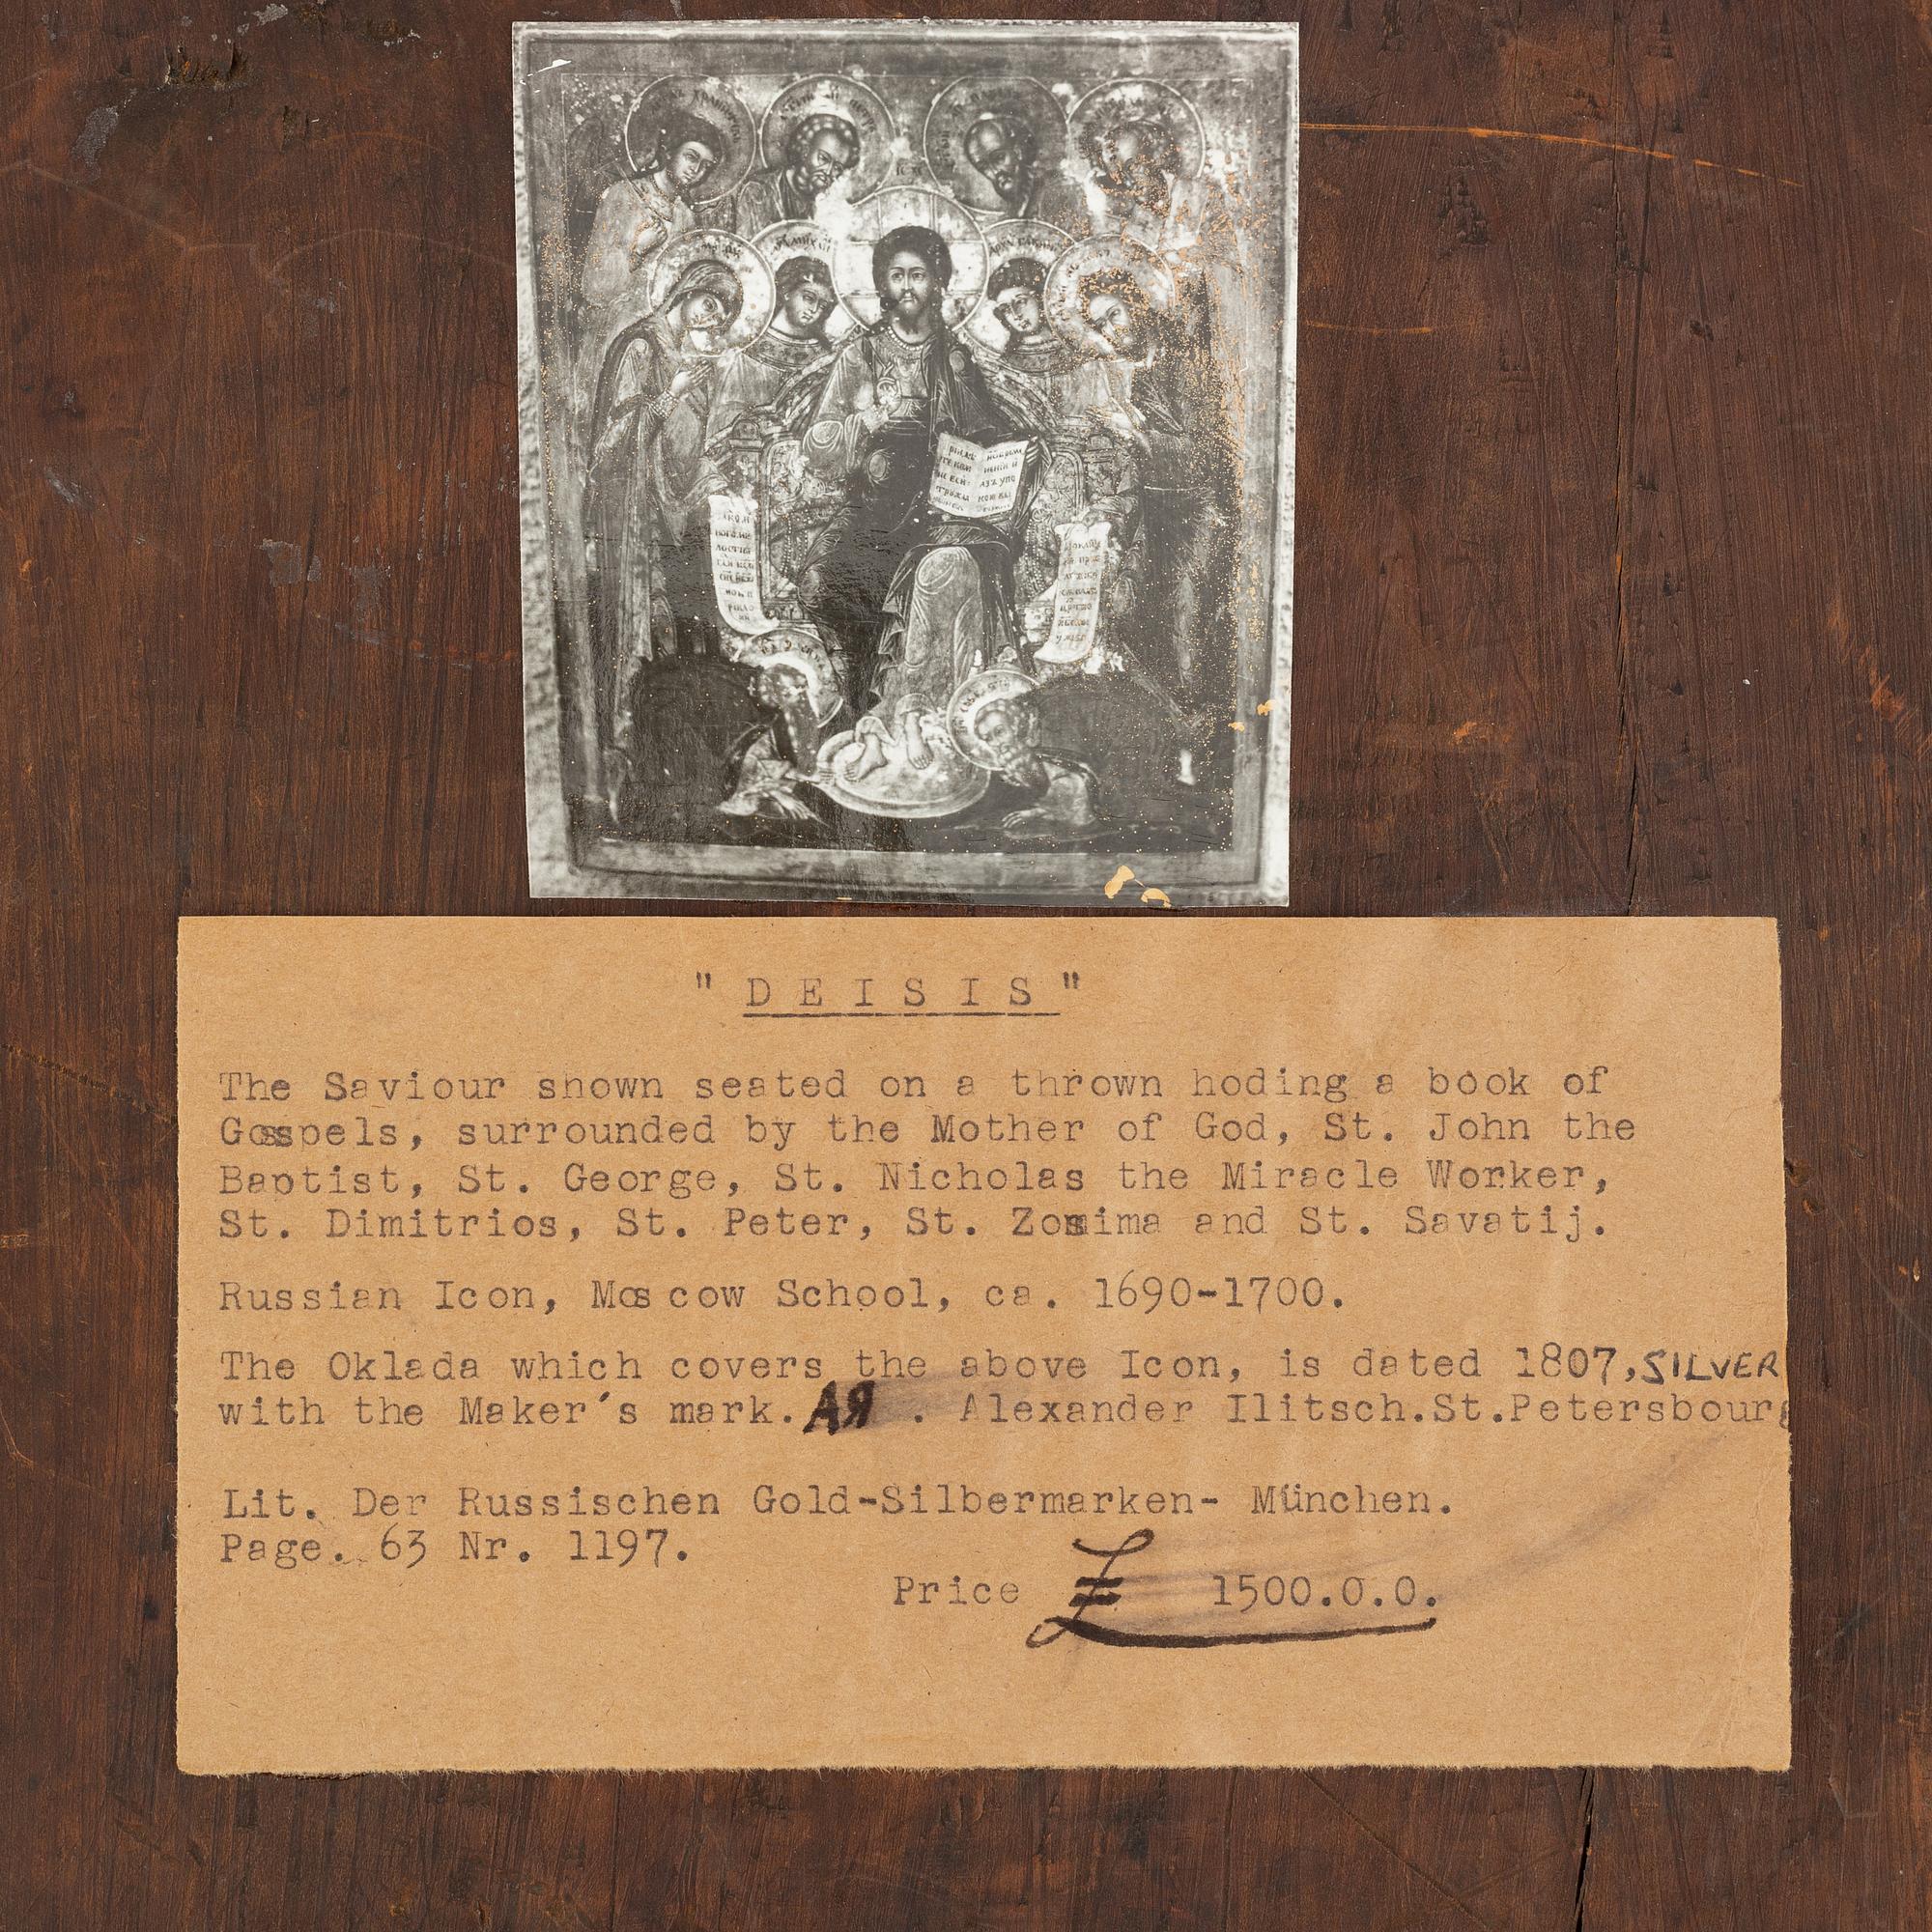 " D E I S I S "
The Saviour shown seated on a thrown hoding a book of
Gospels, surrounded by the Mother of God, St. John the
Baptist, St. George, St. Nicholas the Miracle Worker,
St. Dimitrios, St. Peter, St. Zosima and St. Savatij.
Russian Icon, Moscow School, ca. 1690-1700.
The Oklada which covers the above Icon, is dated 1807, SILVER
with the Maker's mark. АЯ . Alexander Ilitsch.St.Petersbourg
Lit. Der Russischen Gold-Silbermarken- München.
Page. 63 Nr. 1197.
Price £ 1500.0.0.